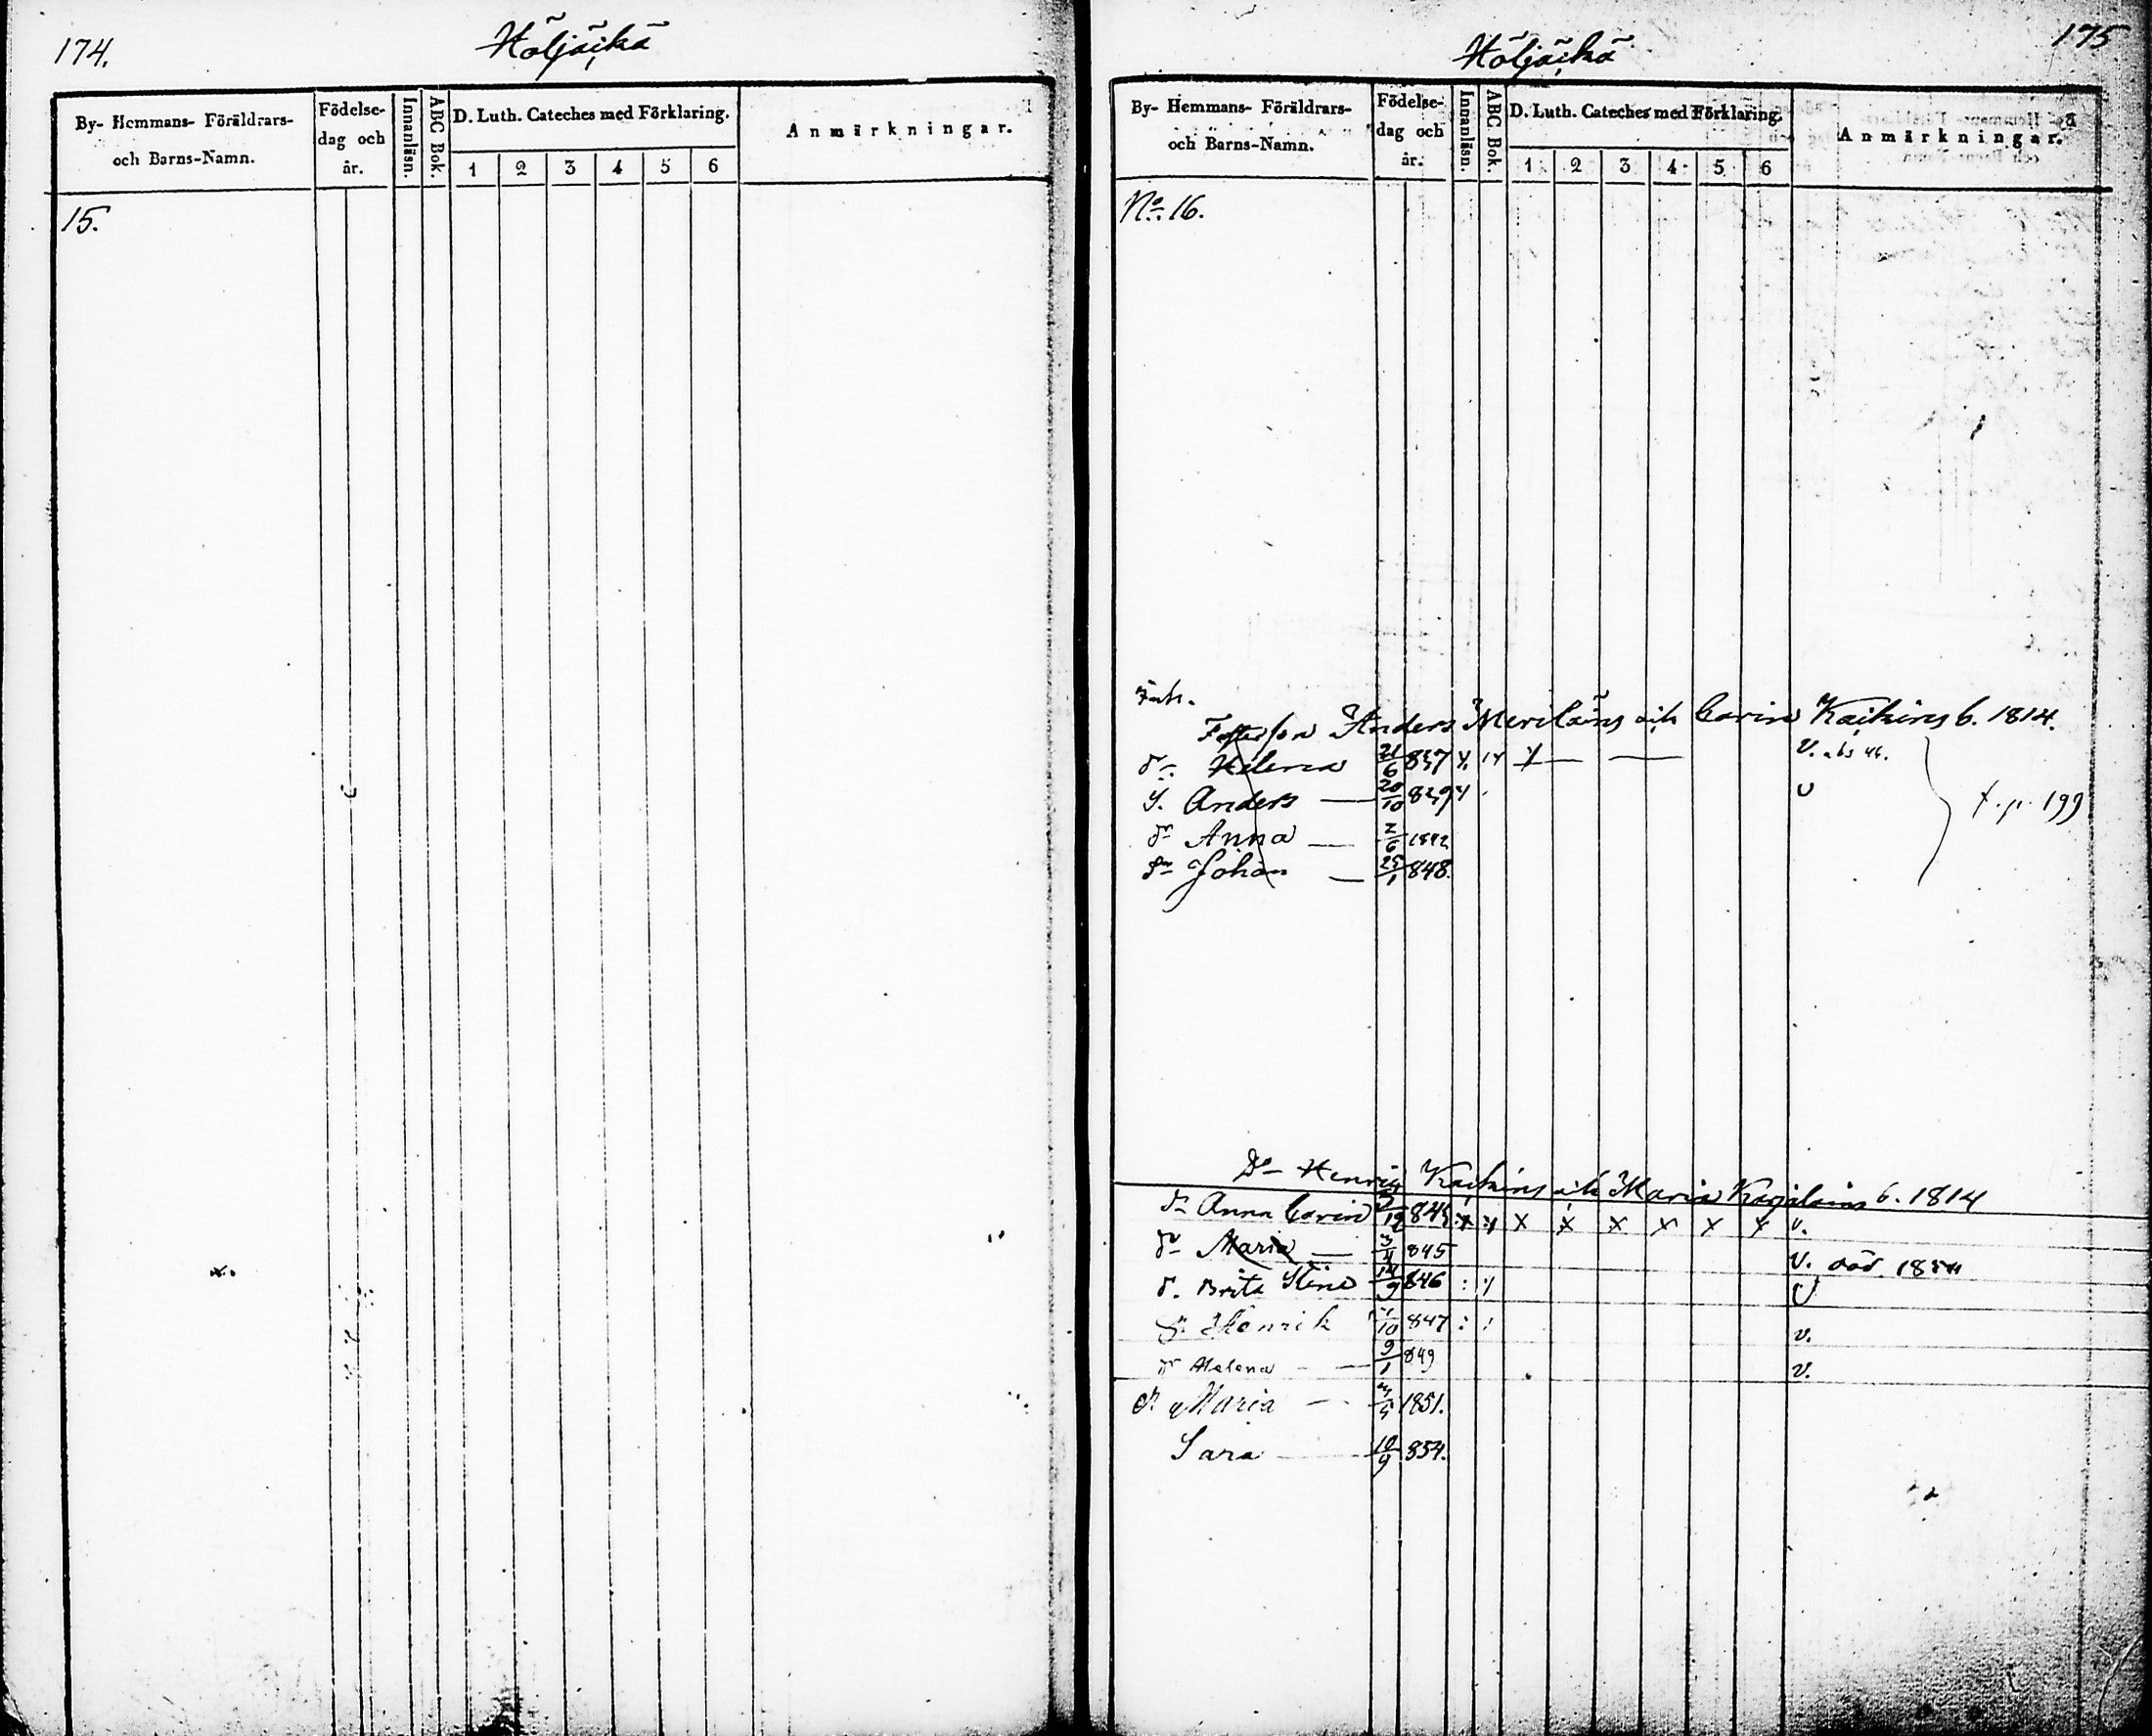 174.
Höljäikä
By- Hemmans- Föräldrars-
och Barns-Namn.
Födelse-
dag och
år.
Innanläsn.
ABC Bok.
D. Luth. Cateches med Förklaring.
1 2 3 4 5 6
Anmärkningar.
15.
175
Höljäikä
By- Hemmans- Föräldrars-
och Barns-Namn.
Födelse-
dag och
år.
Innanläsn.
ABC Bok.
D. Luth. Cateches med Förklaring.
1 2 3 4 5 6
Anmärkningar.
No. 16.
Inh.
Anders Meriläins och Carin Kaikins b. 1814.
dr. Helena 21/6 837 V. abs 46.
S. Anders — 20/10 839 v
dr Anna — 2/6 1842
Sn Johan — 25/1 848.
t. p. 199
Do Henric Kaikins och Maria Karjalains b. 1814
dr Anna Carin /12 843 x x x x x x x v.
dr Maria — 3/4 845 V. död. 1854
d. Brita Stina 14/9 846 v
S. Henrik /10 847 v.
dr Helena — 9/1 849 v.
dr Maria — /5 1851.
Sara — 10/9 854.